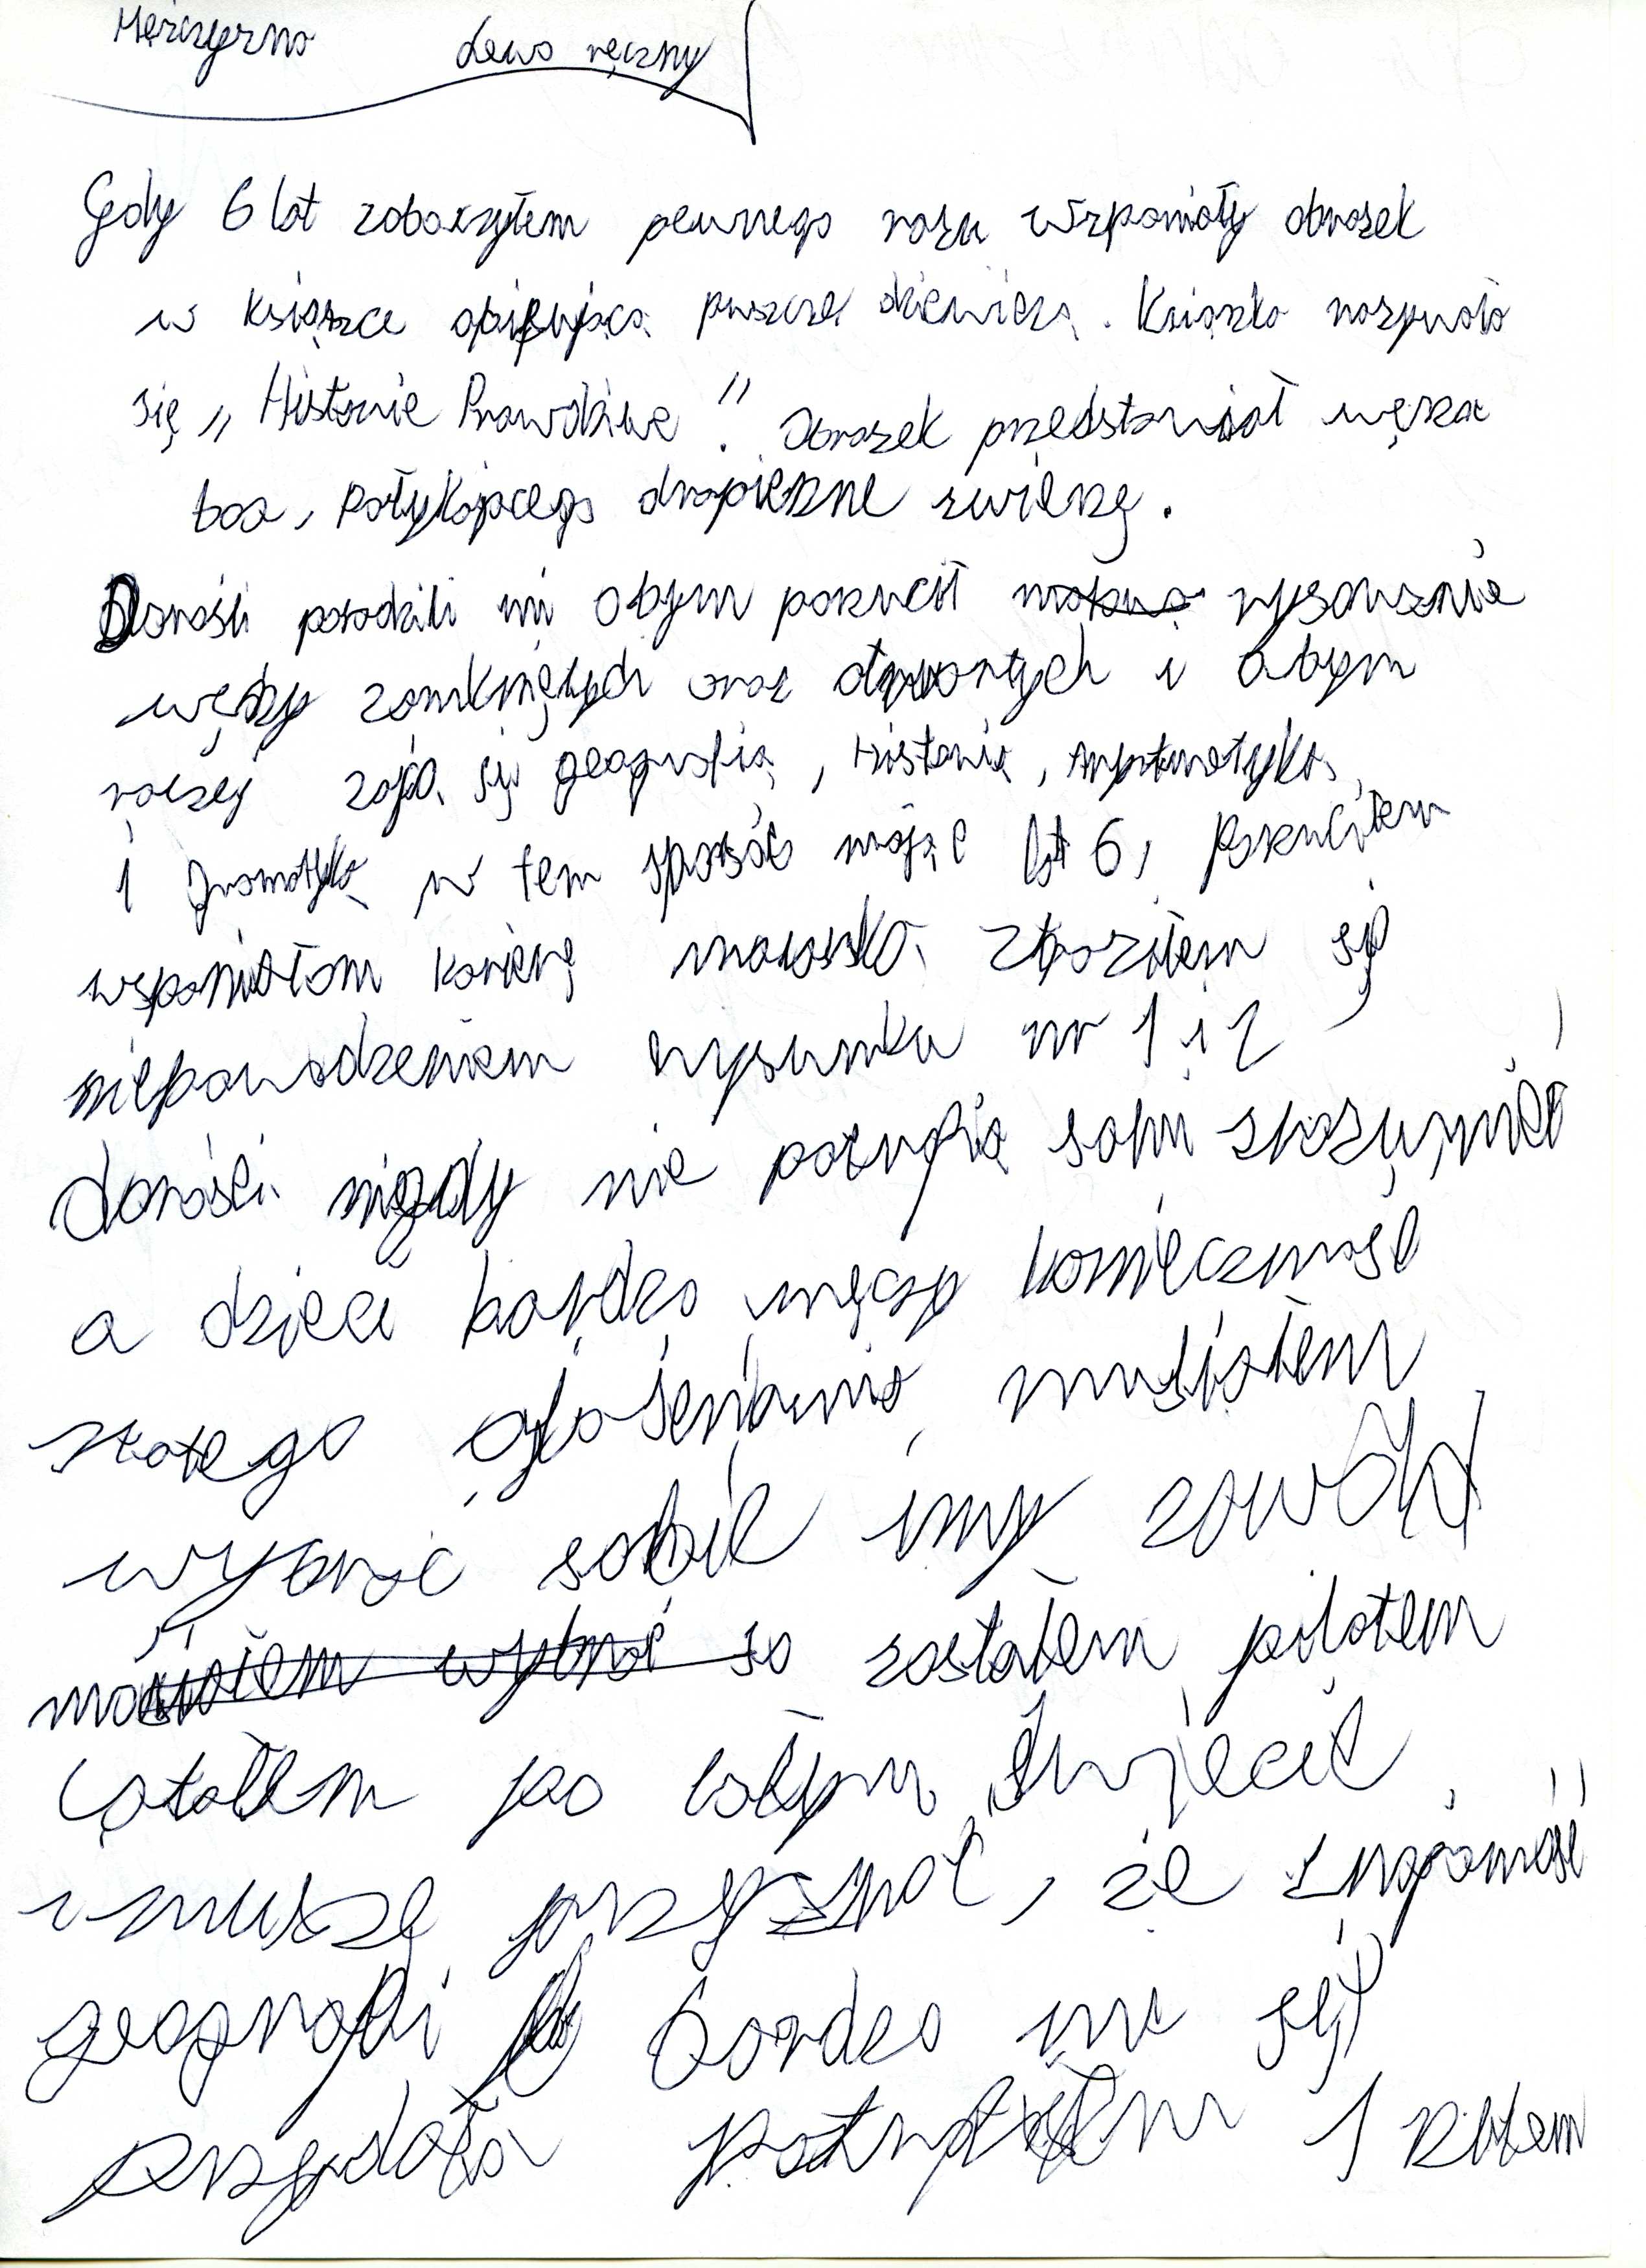 Mężczyzna lewo ręczny
Gdy 6 lat zobaczyłem pewnego razu wspomiały obrazek
w książce opisującą puszcze dziewiczą. Książka nazywała
się „Historie Prawdziwe". Obrazek przedstawiał węża
boa, połykającego drapieżne zwierzę.
Dorośli poradzili mi abym porzucił rysowanie
węży zamkniętych oraz otwartych i abym
raczej zajął się geografią, Historią, arytmetyką
i gramatyką w ten sposób mając lat 6, porzuciłem
wspaniałom karierę malarską. zraziłem się
niepowodzeniem rysunku nr 1 i 2
dorośli nigdy nie potrafią sami zrozumieć
a dzieci bardzo męczy konieczność
stałego objaśniania musiałem
wybrać sobie iny zawód
musiałem wybrać so zostałem pilotem
Latałem po całym świecie
i muszę przyznać, że znajomość
geografi bardzo mi się
przydała potrafiłem 1 rzutem